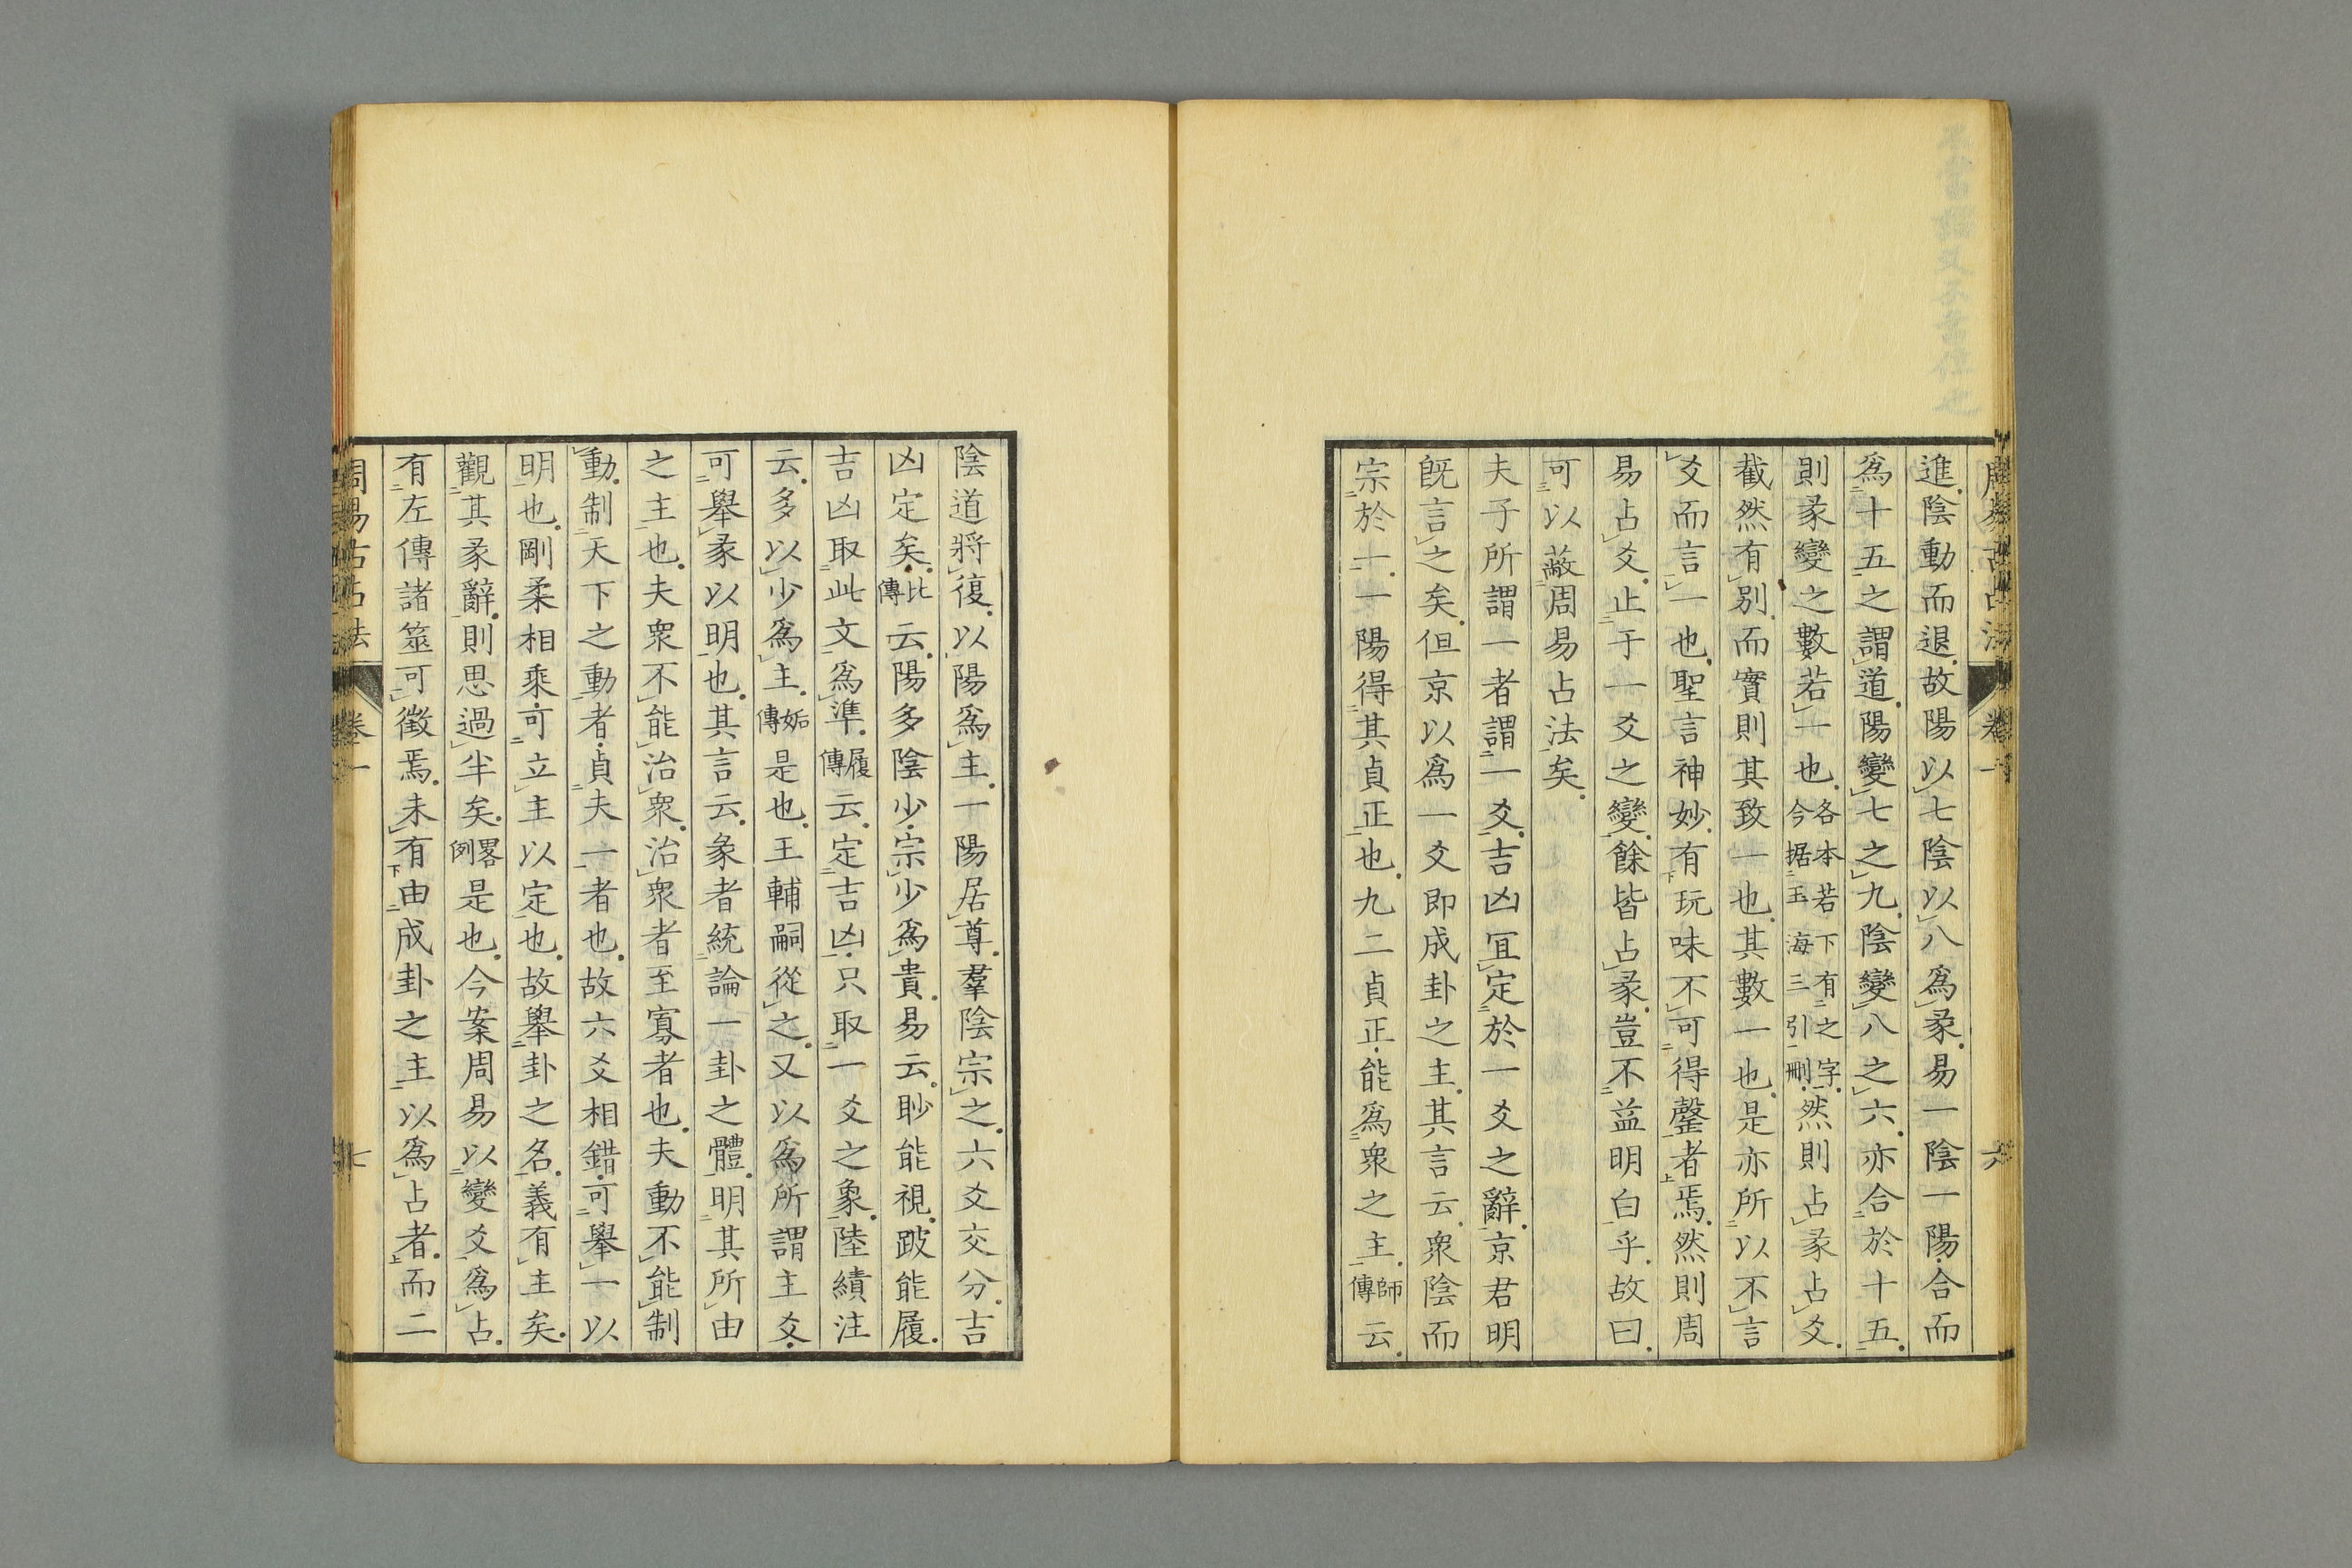 周易古占法 卷一 六
進陰動而退故陽以七陰以八爲彖易一陰一陽合而
爲十五之謂道陽變七之九陰變八之六亦合於十五
則彖變之數若一也各本若下有之字今据玉海三引刪然則占彖占爻
截然有別而實則其致一也其數一也是亦所以不言
爻而言一也聖言神妙有玩味不可得罄者焉然則周
易占爻止于一爻之變餘皆占彖豈不益明白乎故曰
可以蔽周易占法矣
夫子所謂一者謂一爻吉凶冝定於一爻之辭京君明
既言之矣但京以爲一爻即成卦之主其言云衆陰而
宗於一一陽得其貞正也九二貞正能爲衆之主師傳云
陰道將復以陽爲主一陽居尊羣陰宗之六爻交分吉
凶定矣比傳云陽多陰少宗少爲貴易云眇能視跛能履
吉凶取此文爲準履傳云定吉凶只取一爻之象陸績注
云多以少爲主姤傳是也王輔嗣從之又以爲所謂主爻
可舉彖以明也其言云彖者統論一卦之體明其所由
之主也夫衆不能治衆治衆者至寡者也夫動不能制
動制天下之動者貞夫一者也故六爻相錯可舉一以
明也剛柔相乘可立主以定也故舉卦之名義有主矣
觀其彖辭則思過半矣畧例是也今案周易以變爻爲占
有左傳諸筮可徵焉未有由成卦之主以爲占者而二
周易古占法 卷一 七